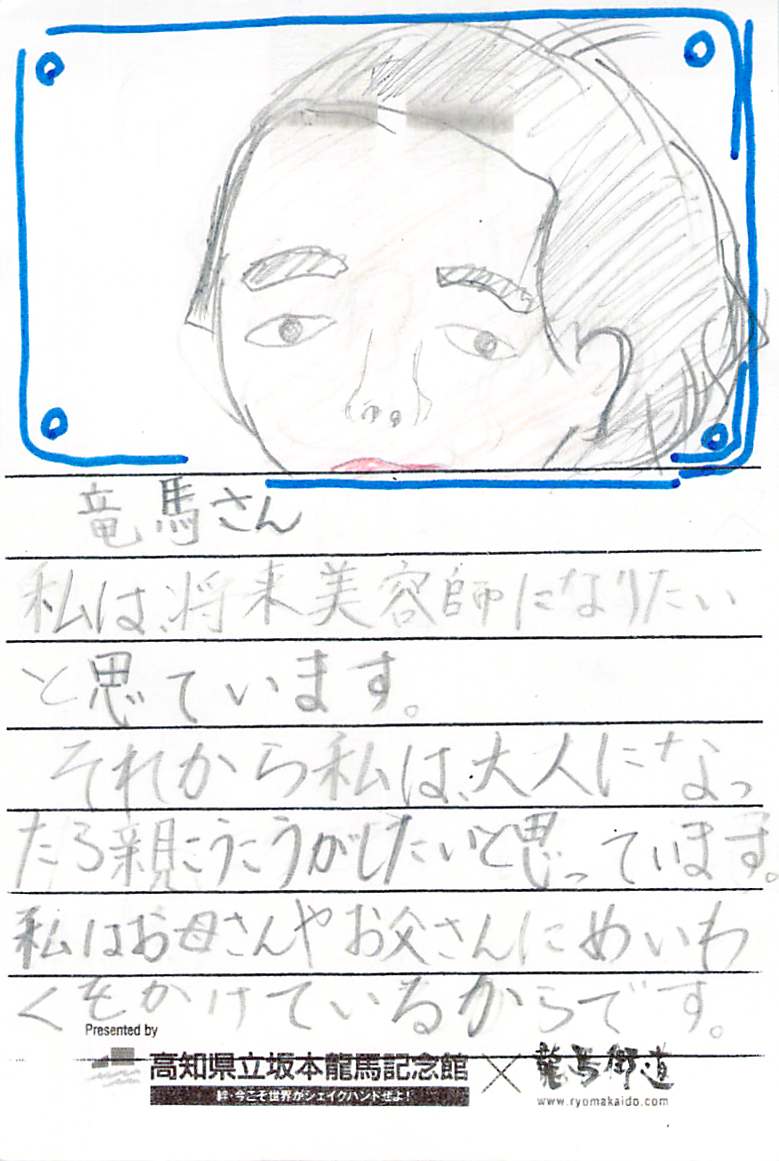 竜馬さん
私は、将来美容師になりたい
と思ています。
それから私は、大人になっ
たら親こうこうがしたいと思っています。
私はお母さんやお父さんにめいわ
くをかけているからです。
Presented by
高知県立坂本龍馬記念館 × 龍馬街道
絆・今こそ世界がシェイクハンドぜよ!
www.ryomakaido.com